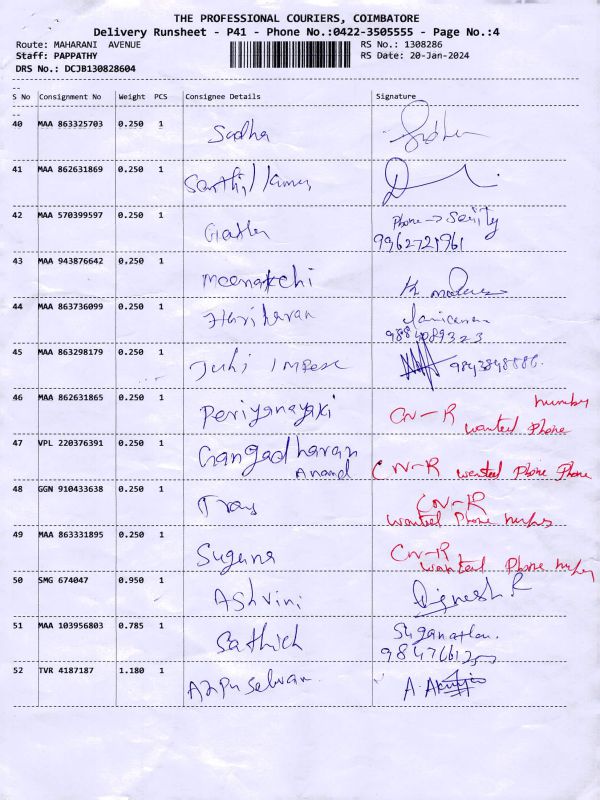 THE PROFESSIONAL COURIERS, COIMBATORE
Delivery Runsheet - P41 - Phone No.:0422-3505555 - Page No.:4
Route: MAHARANI AVENUE RS No.: 1308286
Staff: PAPPATHY RS Date: 20-Jan-2024
DRS No.: DCJB130828604
--
S No Consignment No Weight PCS Consignee Details Signature
--
40 MAA 863325703 0.250 1
Sudha
41 MAA 862631869 0.250 1
Senthil kumar
42 MAA 570399597 0.250 1 Phone → Security
9962721961
43 MAA 943876642 0.250 1
Meenakchi
44 MAA 863736099 0.250 1
Hariharan
9884089323
45 MAA 863298179 0.250 1
Juhi Impex 9843848886.
46 MAA 862631865 0.250 1
Periyanayaki CN-R number
wanted Phone
47 VPL 220376391 0.250 1
Gangadharan
Anand CN-R wanted Phone Phone
48 GGN 910433638 0.250 1
CN-R
wanted Phone
49 MAA 863331895 0.250 1
Suguna CN-R
wanted Phone
50 SMG 674047 0.950 1
Ashvini Vignesh.R
51 MAA 103956803 0.785 1
Sathich
52 TVR 4187187 1.180 1